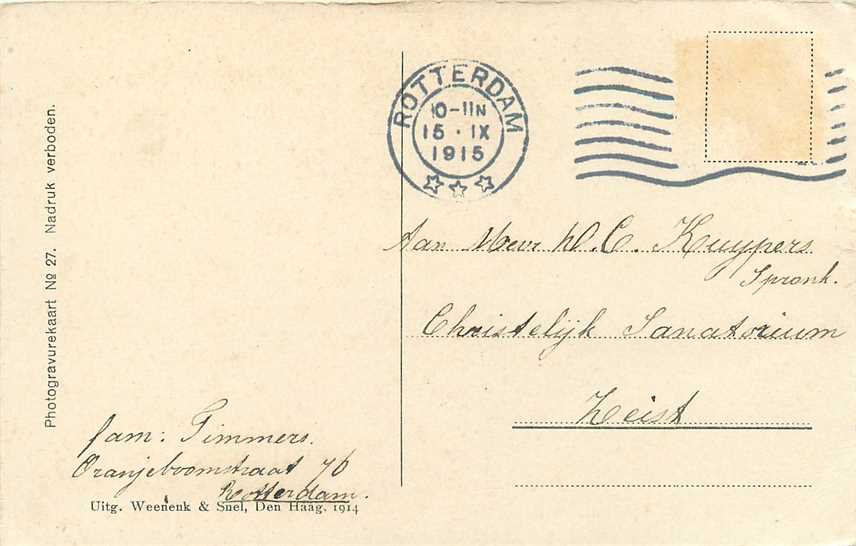 Photogravurekaart No 27. Nadruk verboden.
ROTTERDAM
10-11N
15 · IX
1915
Aan Mevr W. C. Kuypers
Spronk.
Christelijk Sanatorium
Zeist
fam: Timmers.
Oranjeboomstraat 76
Rotterdam.
Uitg. Weenenk & Snel, Den Haag. 1914